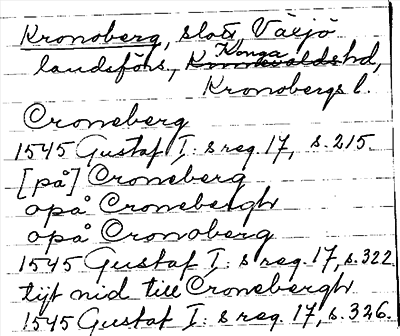 Kronoberg, slott, Växjö
landsförs., Konga hd,
Kronobergs l.
Croneberg
1545 Gustaf I: s reg. 17, s. 215.
[på] Croneberg
opå Cronebergh
opå Cronoberg
1545 Gustaf I: s reg. 17, s. 322.
tijt nid till Cronebergh
1545 Gustaf I: s reg. 17, s. 326.